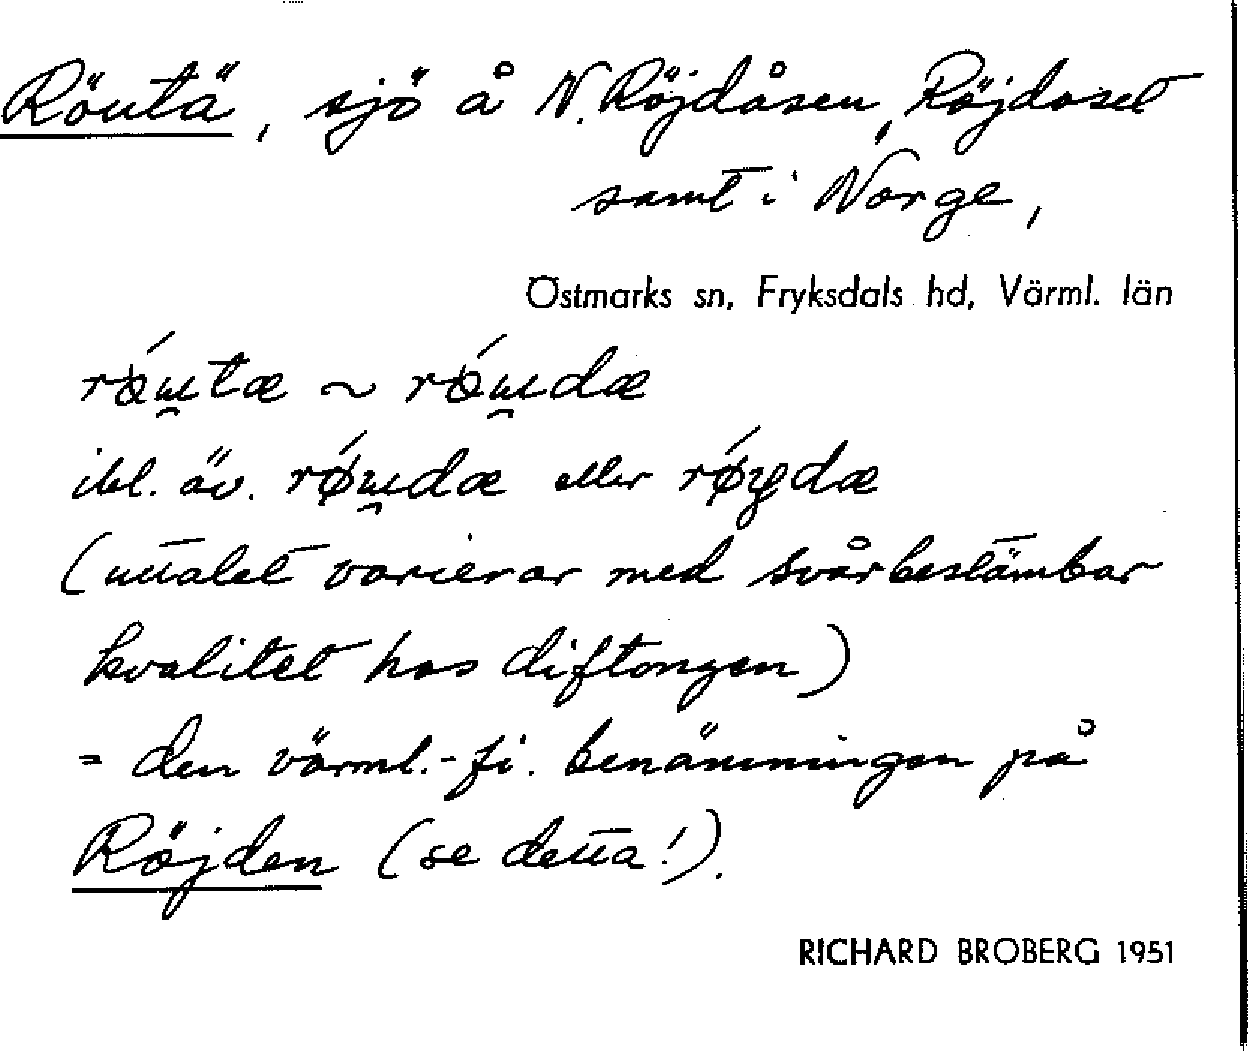 Röutä, sjö å N. Röjdåsen, Röjdoset
samt i Norge,
Östmarks sn, Fryksdals hd, Värml. län
ibl. äv. eller
(uttalet varierar med svårbestämbar
kvalitet hos diftongen)
= den värml.-fi. benämningen på
Röjden (se detta!).
RICHARD BROBERG 1951